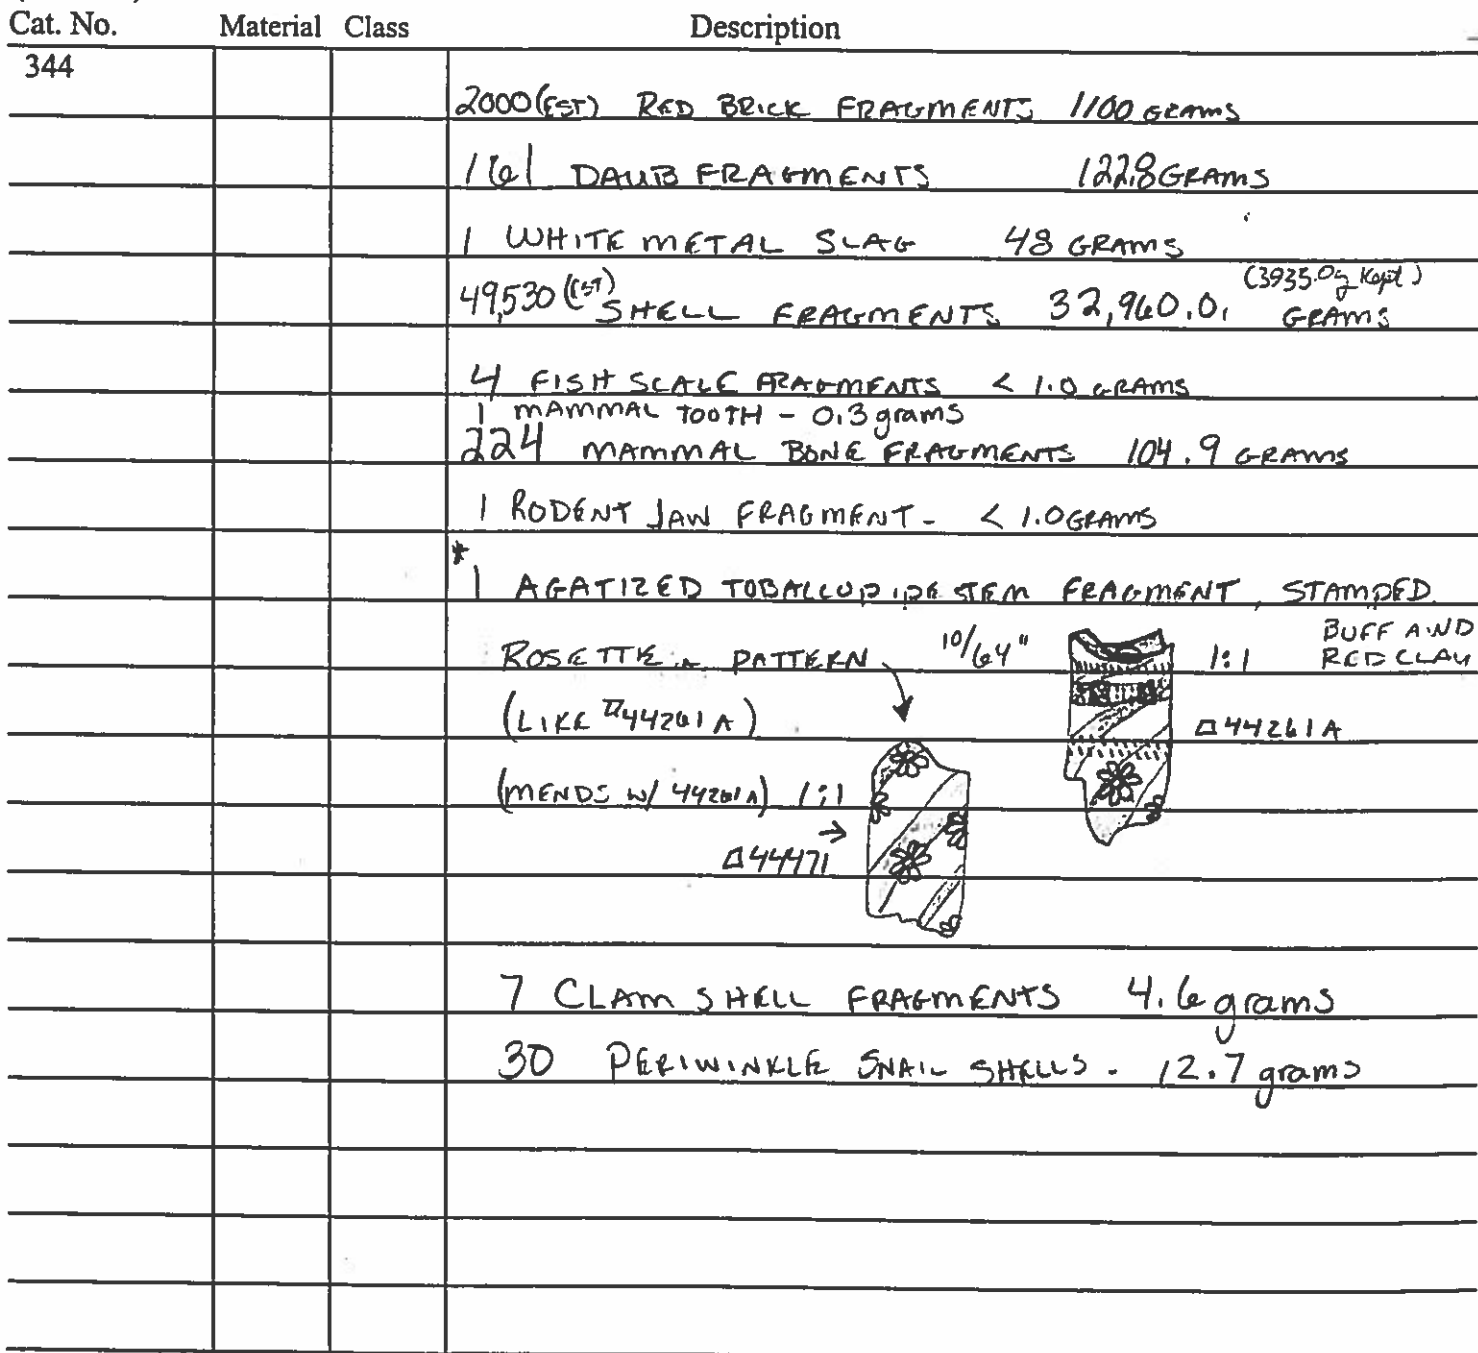 Cat. No. Material Class Description
344
2000 (EST) RED BRICK FRAGMENTS 1100 GRAMS
161 DAUB FRAGMENTS 122.8 GRAMS
1 WHITE METAL SLAG 48 GRAMS
(3935.0g Kept)
49,530 (EST) SHELL FRAGMENTS 32,960.0 GRAMS
4 FISH SCALE FRAGMENTS < 1.0 GRAMS
1 MAMMAL TOOTH - 0.3 grams
224 MAMMAL BONE FRAGMENTS 104.9 GRAMS
1 RODENT JAW FRAGMENT - < 1.0 GRAMS
* 1 AGATIZED TOBACCO PIPE STEM FRAGMENT, STAMPED
ROSETTE PATTERN 10/64" 1:1 BUFF AND RED CLAY
(LIKE 44261A) 44261A
(MENDS W/ 44261A) 1:1
44471
7 CLAM SHELL FRAGMENTS 4.6 grams
30 PERIWINKLE SNAIL SHELLS. 12.7 grams